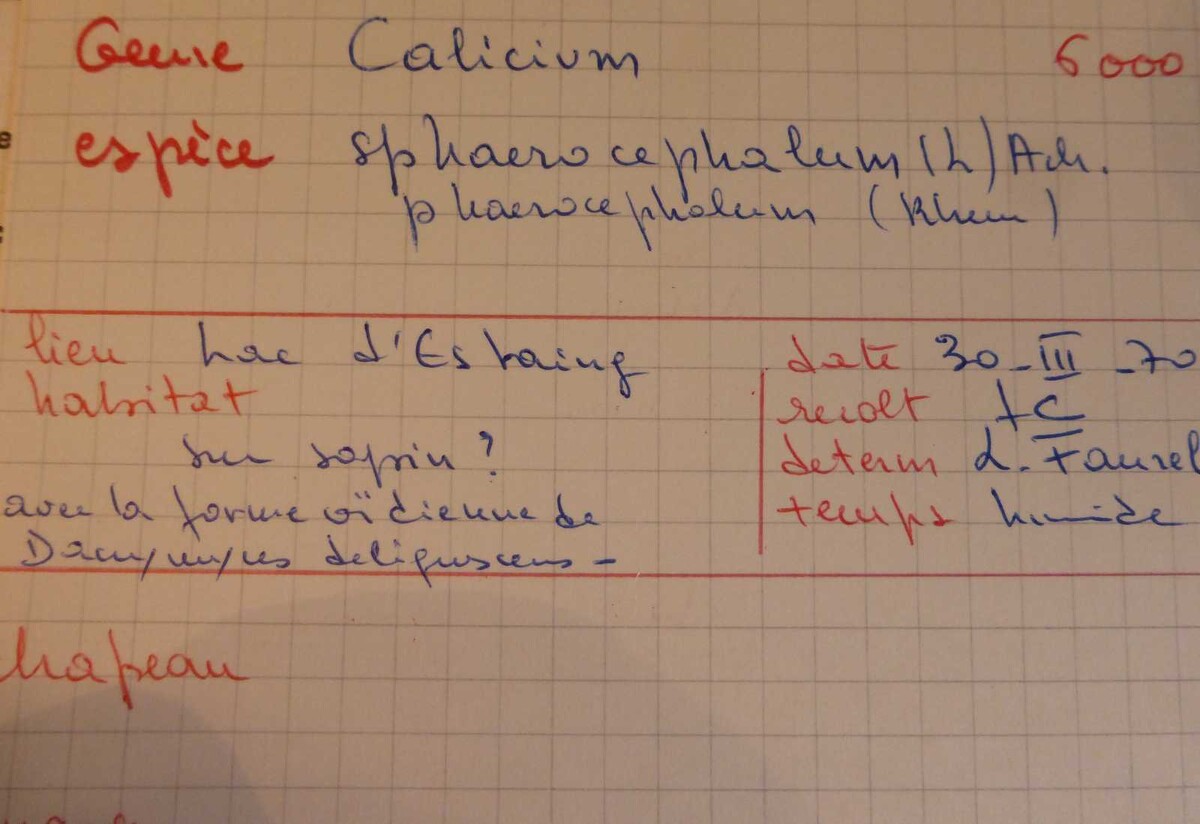 Genre Calicium 6000
espèce sphaerocephalum (L) Ach.
phaerocephalum (Rhem)
lieu Lac d'Estaing date 30-III-70
habitat recolt
sur sapin ? determ L. Faurel
avec la forme oïdienne de temps humide
Dacrymyces deliquescens -
hapeau